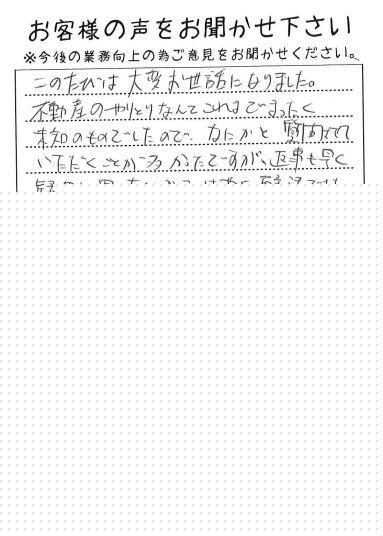 お客様の声をお聞かせ下さい
※今後の業務向上の為ご意見をお聞かせください。
このたびは大変お世話になりました。
不動産のやりとりなんてこれまでまったく
未知のものでしたので、なにかと質問させて
いただくことが多かったですが、返事も早く